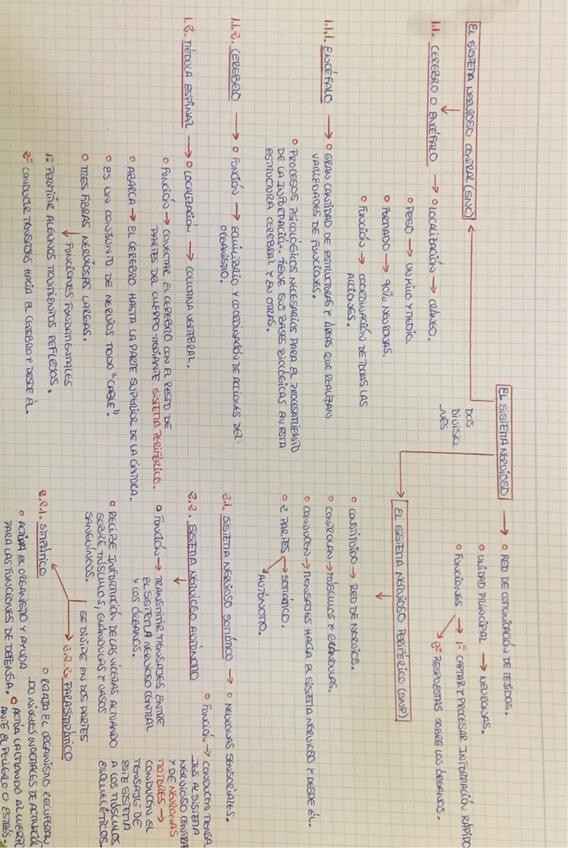 EL SISTEMA NERVIOSO → RED DE COMUNICACIÓN DE TEJIDOS.
UNIDAD PRINCIPAL → NEURONAS.
FUNCIONES → 1º CAPTAR Y PROCESAR INFORMACIÓN RÁPIDO
2º RESPUESTAS SOBRE LOS ÓRGANOS.
DOS
DIVISIO_
NES
EL SISTEMA NERVIOSO CENTRAL (SNC)
1.1. CEREBRO O ENCÉFALO → LOCALIZACIÓN → CRÁNEO.
PESO → UN KILO Y MEDIO.
FORMADO → 90% NEURONAS.
FUNCIÓN → COORDINACIÓN DE TODAS LAS
ACCIONES.
1.1.1. ENCÉFALO → GRAN CANTIDAD DE ESTRUCTURAS Y ÁREAS QUE REALIZAN
VARIEDADES DE FUNCIONES.
PROCESOS PSICOLÓGICOS NECESARIOS PARA EL PROCESAMIENTO
DE LA INFORMACIÓN, TIENE SUS BASES BIOLÓGICAS EN ESTA
ESTRUCTURA CEREBRAL Y EN OTRAS.
1.1.2. CEREBELO → FUNCIÓN → EQUILIBRIO Y COORDINACIÓN DE ACCIONES DEL
ORGANISMO.
1.2. MÉDULA ESPINAL → LOCALIZACIÓN → COLUMNA VERTEBRAL.
FUNCIÓN → CONECTAR EL CEREBRO CON EL RESTO DE
PARTES DEL CUERPO MEDIANTE SISTEMA PERIFÉRICO.
ABARCA → EL CEREBRO HASTA LA PARTE SUPERIOR DE LA CINTURA.
ES UN CONJUNTO DE NERVIOS MODO "CABLE".
TRES FIBRAS NERVIOSAS LARGAS.
FUNCIONES FUNDAMENTALES
1º PERMITIR ALGUNOS MOVIMIENTOS REFLEJOS.
2º CONDUCIR MENSAJES HACIA EL CEREBRO Y DESDE ÉL.
EL SISTEMA NERVIOSO PERIFÉRICO (SNP)
CONSTITUIDO → RED DE NERVIOS.
CONTROLAN → MÚSCULOS Y GLÁNDULAS.
CONDUCEN → MENSAJES HACIA EL SISTEMA NERVIOSO Y DESDE ÉL.
2 PARTES → SOMÁTICO.
AUTÓNOMO.
2.1. SISTEMA NERVIOSO SOMÁTICO → NEURONAS SENSORIALES.
FUNCIÓN → CONDUCEN MENSA
JES AL SISTEMA
NERVIOSO CENTRAL
Y DE NEURONAS
MOTORES →
CONDUCEN EL
MENSAJE DE
ESTE SISTEMA
A LOS MÚSCULOS
ESQUELÉTICOS.
2.2. SISTEMA NERVIOSO AUTÓNOMO
FUNCIÓN → TRANSMITIR MENSAJES ENTRE
EL SISTEMA NERVIOSO CENTRAL
Y LOS ÓRGANOS.
RECIBE INFORMACIÓN DE LAS VÍCERAS ACTUANDO
SOBRE MÚSCULOS, GLÁNDULAS Y VASOS
SANGUÍNEOS.
SE DIVIDE EN DOS PARTES
2.2.1. SIMPÁTICO
ACTIVA EL ORGANISMO Y AYUDA
PARA LAS FUNCIONES DE DEFENSA.
2.2.2. PARASIMPÁTICO
RELAJA EL ORGANISMO RECUPERAN
DO NIVELES NORMALES DE
ACTÚA CALMANDO AL CUERPO
ANTE EL PELIGRO O ESTRÉS.